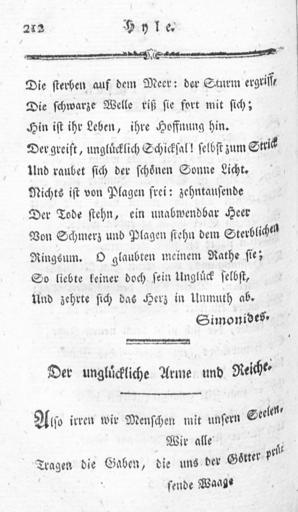 212 Hyle.
Die sterben auf dem Meer: der Sturm ergriff,
Die schwarze Welle riß sie fort mit sich;
Hin ist ihr Leben, ihre Hoffnung hin.
Der greift, unglücklich Schicksal! selbst zum Strick
Und raubet sich der schönen Sonne Licht.
Nichts ist von Plagen frei: zehntausende
Der Tode stehn, ein unabwendbar Heer
Von Schmerz und Plagen stehn dem Sterblichen
Ringsum. O glaubten meinem Rathe sie;
So liebte keiner doch sein Unglück selbst,
Und zehrte sich das Herz in Unmuth ab.
Simonides.
Der unglückliche Arme und Reiche.
Also irren wir Menschen mit unsern Seelen.
Wir alle
Tragen die Gaben, die uns der Götter prüf
sende Waage